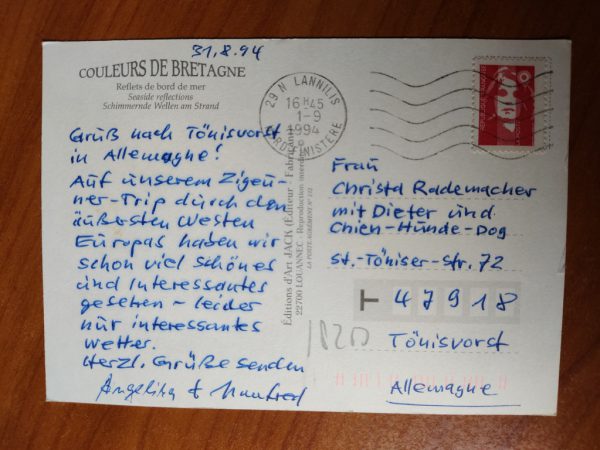 31.8.94
COULEURS DE BRETAGNE
Reflets de bord de mer
Seaside reflections
Schimmernde Wellen am Strand
Gruß nach Tönisvorst
in Allemagne!
Auf unserem Zigeu-
ner-Trip durch den
äußersten Westen
Europas haben wir
schon viel schönes
und Interessantes
gesehen - leider
nur interessantes
Wetter.
Herzl. Grüße senden
Angelika & Manfred
Editions d'Art JACK (Éditeur - Fabricant)
22700 LOUANNEC - Reproduction interdite
LA POSTE AGREMENT N°
29 N LANNILIS
16H45
1-9
1994
NORD-FINISTERE
Frau
Christa Rademacher
mit Dieter und
Chien-Hunde-Dog
St.-Töniser-Str. 72
T 47918
Tönisvorst
Allemagne